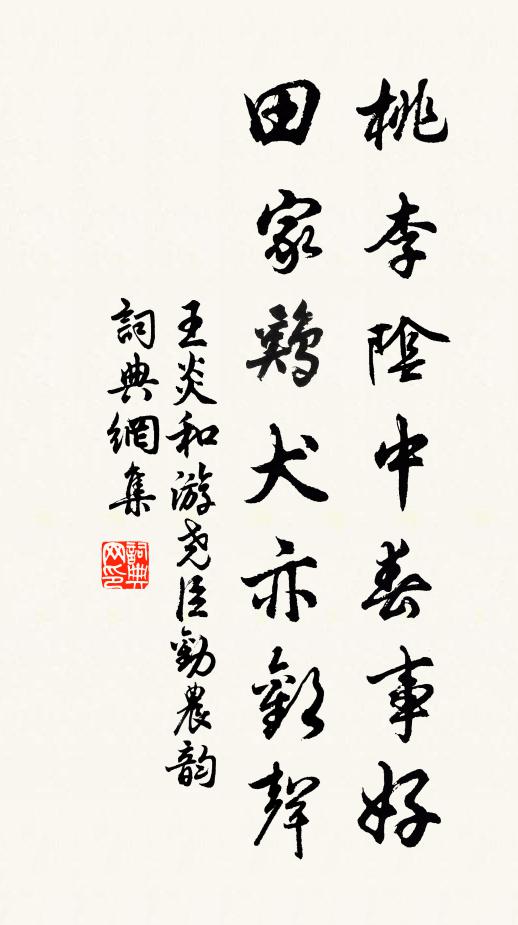 桃李陰中春事好
田家鷄犬亦歡聲
王炎和游堯臣勸農韵
詞典網集
詞典网印